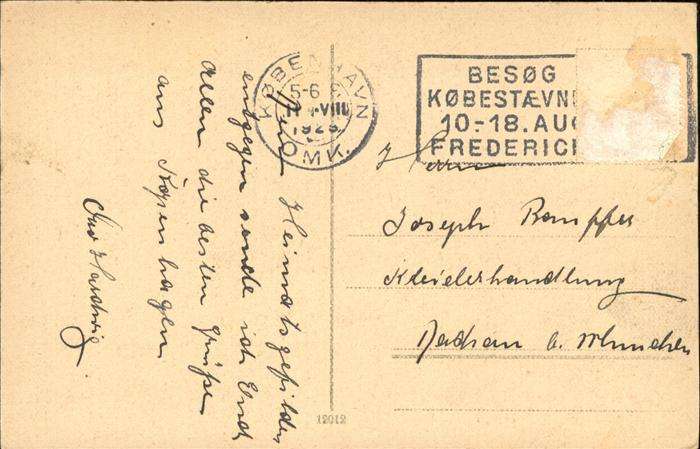 KØBENHAVN
5-6
VIII
OMK.
BESØG
KØBESTÆVN
10.-18. AUG
FREDERICI
Heimatsgefilden
entgegen sende ich Euch
Allen die besten Grüsse
aus Kopenhagen
Herrn
Joseph
Kleiderhandlung
Dachau b. München
12012